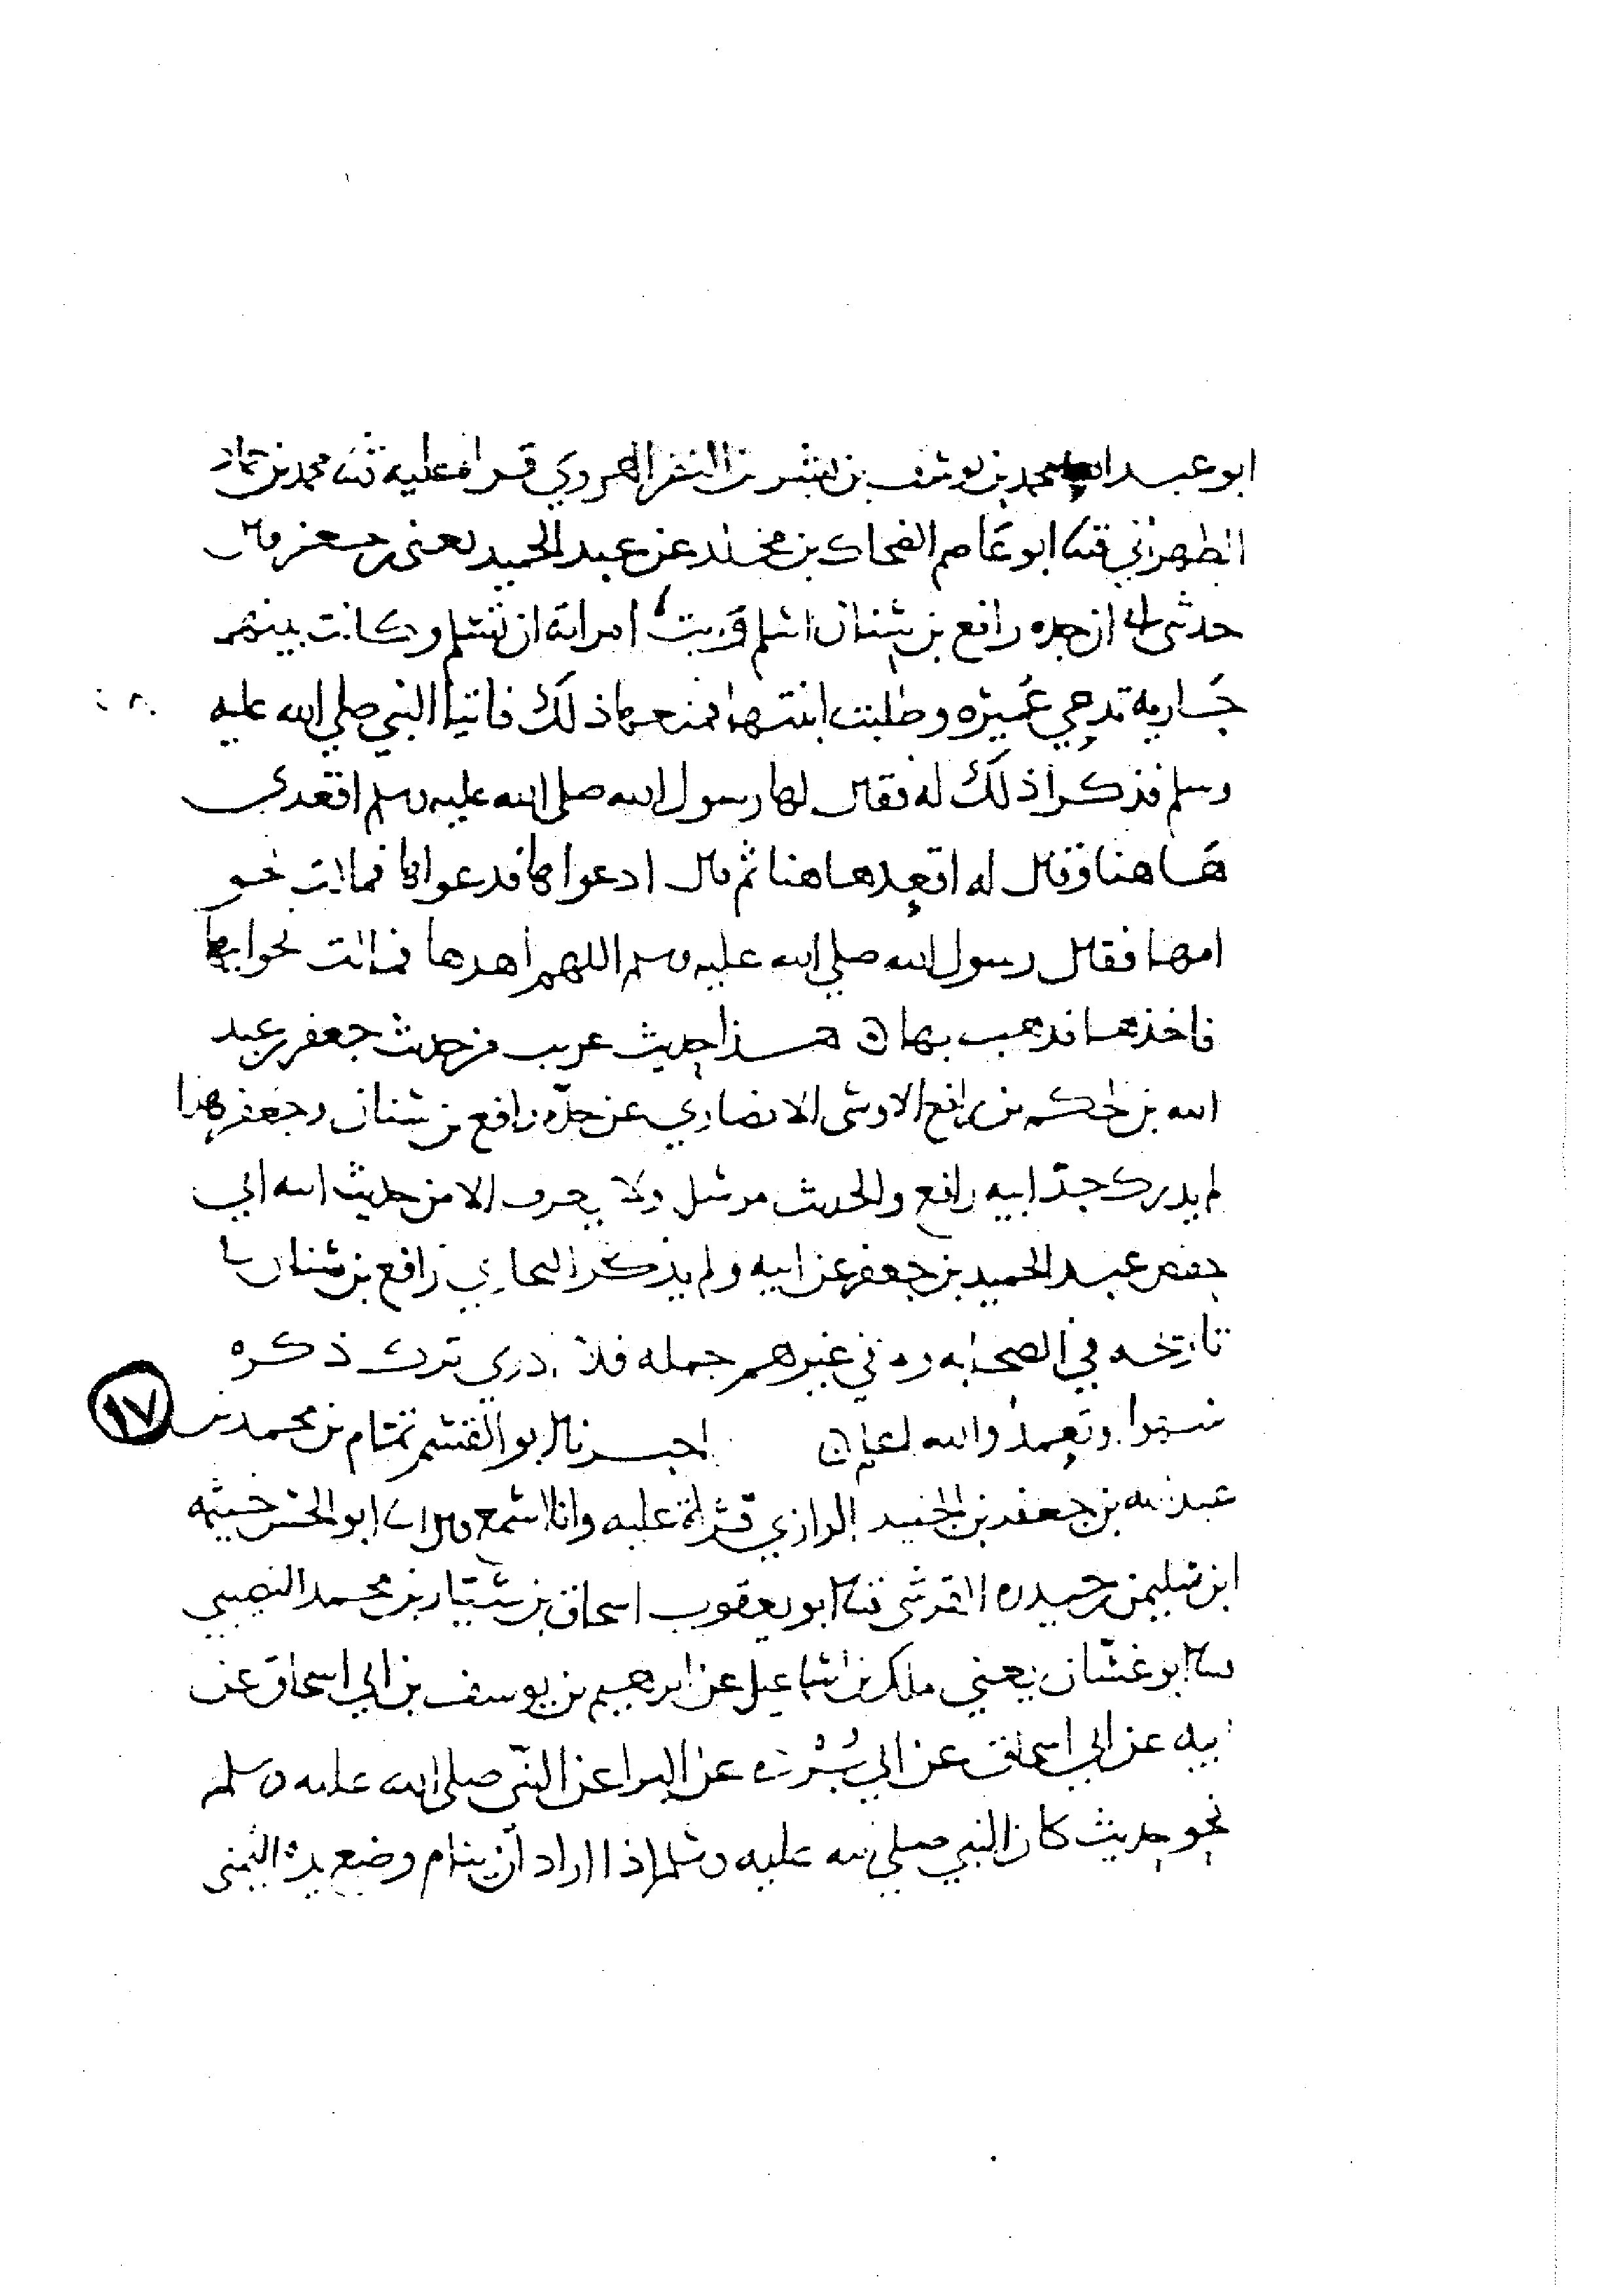 ابو عبد الله محمد بن يوسف بن بشر بن النضر الهروي قراه عليه ثنا محمد بن حماد
الطهراني ثنا ابو عاصم الضحاك بن مخلد عن عبد الحميد يعني بن جعفر قال
حدثني ابي ان جده رافع بن سنان اسلم وابت امراته ان تسلم وكانت بينهم
جارية تدعي عميره وطلبت ابنتها فمنعها ذلك فاتيا النبي صلي الله عليه
وسلم فذكرا ذلك له فقال لها رسول الله صلى الله عليه وسلم اقعدي
هاهنا وقال له اقعد هاهنا ثم قال ادعواها فدعواها فمالت نحو
امها فقال رسول الله صلي الله عليه وسلم اللهم اهدها فمالت نحو ابيها
فاخذها فذهب بها هذا حديث غريب من حديث جعفر بن عبد
الله بن الحكم بن رافع الاوسي الانصاري عن جده رافع بن سنان وجعفر هذا
لم يدرك جد ابيه رافع والحديث مرسل ولا يعرف الا من حديث ابنه ابي
حفص عبد الحميد بن جعفر عن ابيه ولم يذكر البخاري رافع بن سنان
تاريخه في الصحابه ولا في غيرهم جمله فلا ادري ترك ذكره
او تعمدا والله اعلم اخبرنا ابو القسم تمام بن محمد بن
١٧
عبد الله بن جعفر بن الجنيد الرازي قراة عليه وانا اسمع قال ابنا ابو الحسن خيثمه
ابن سليمن بن حيدره القرشي ثنا ابو يعقوب اسحاق بن سيار بن محمد النصيبي
ثنا ابو غسان يعني ملك بن اسماعيل عن ابرهيم بن يوسف بن ابي اسحاق عن
ابيه عن ابي اسحاق عن ابي بردة عن البرا عن النبي صلى الله عليه وسلم
نحو حديث كان النبي صلي الله عليه وسلم اذا اراد ان ينام وضع يده اليمنى